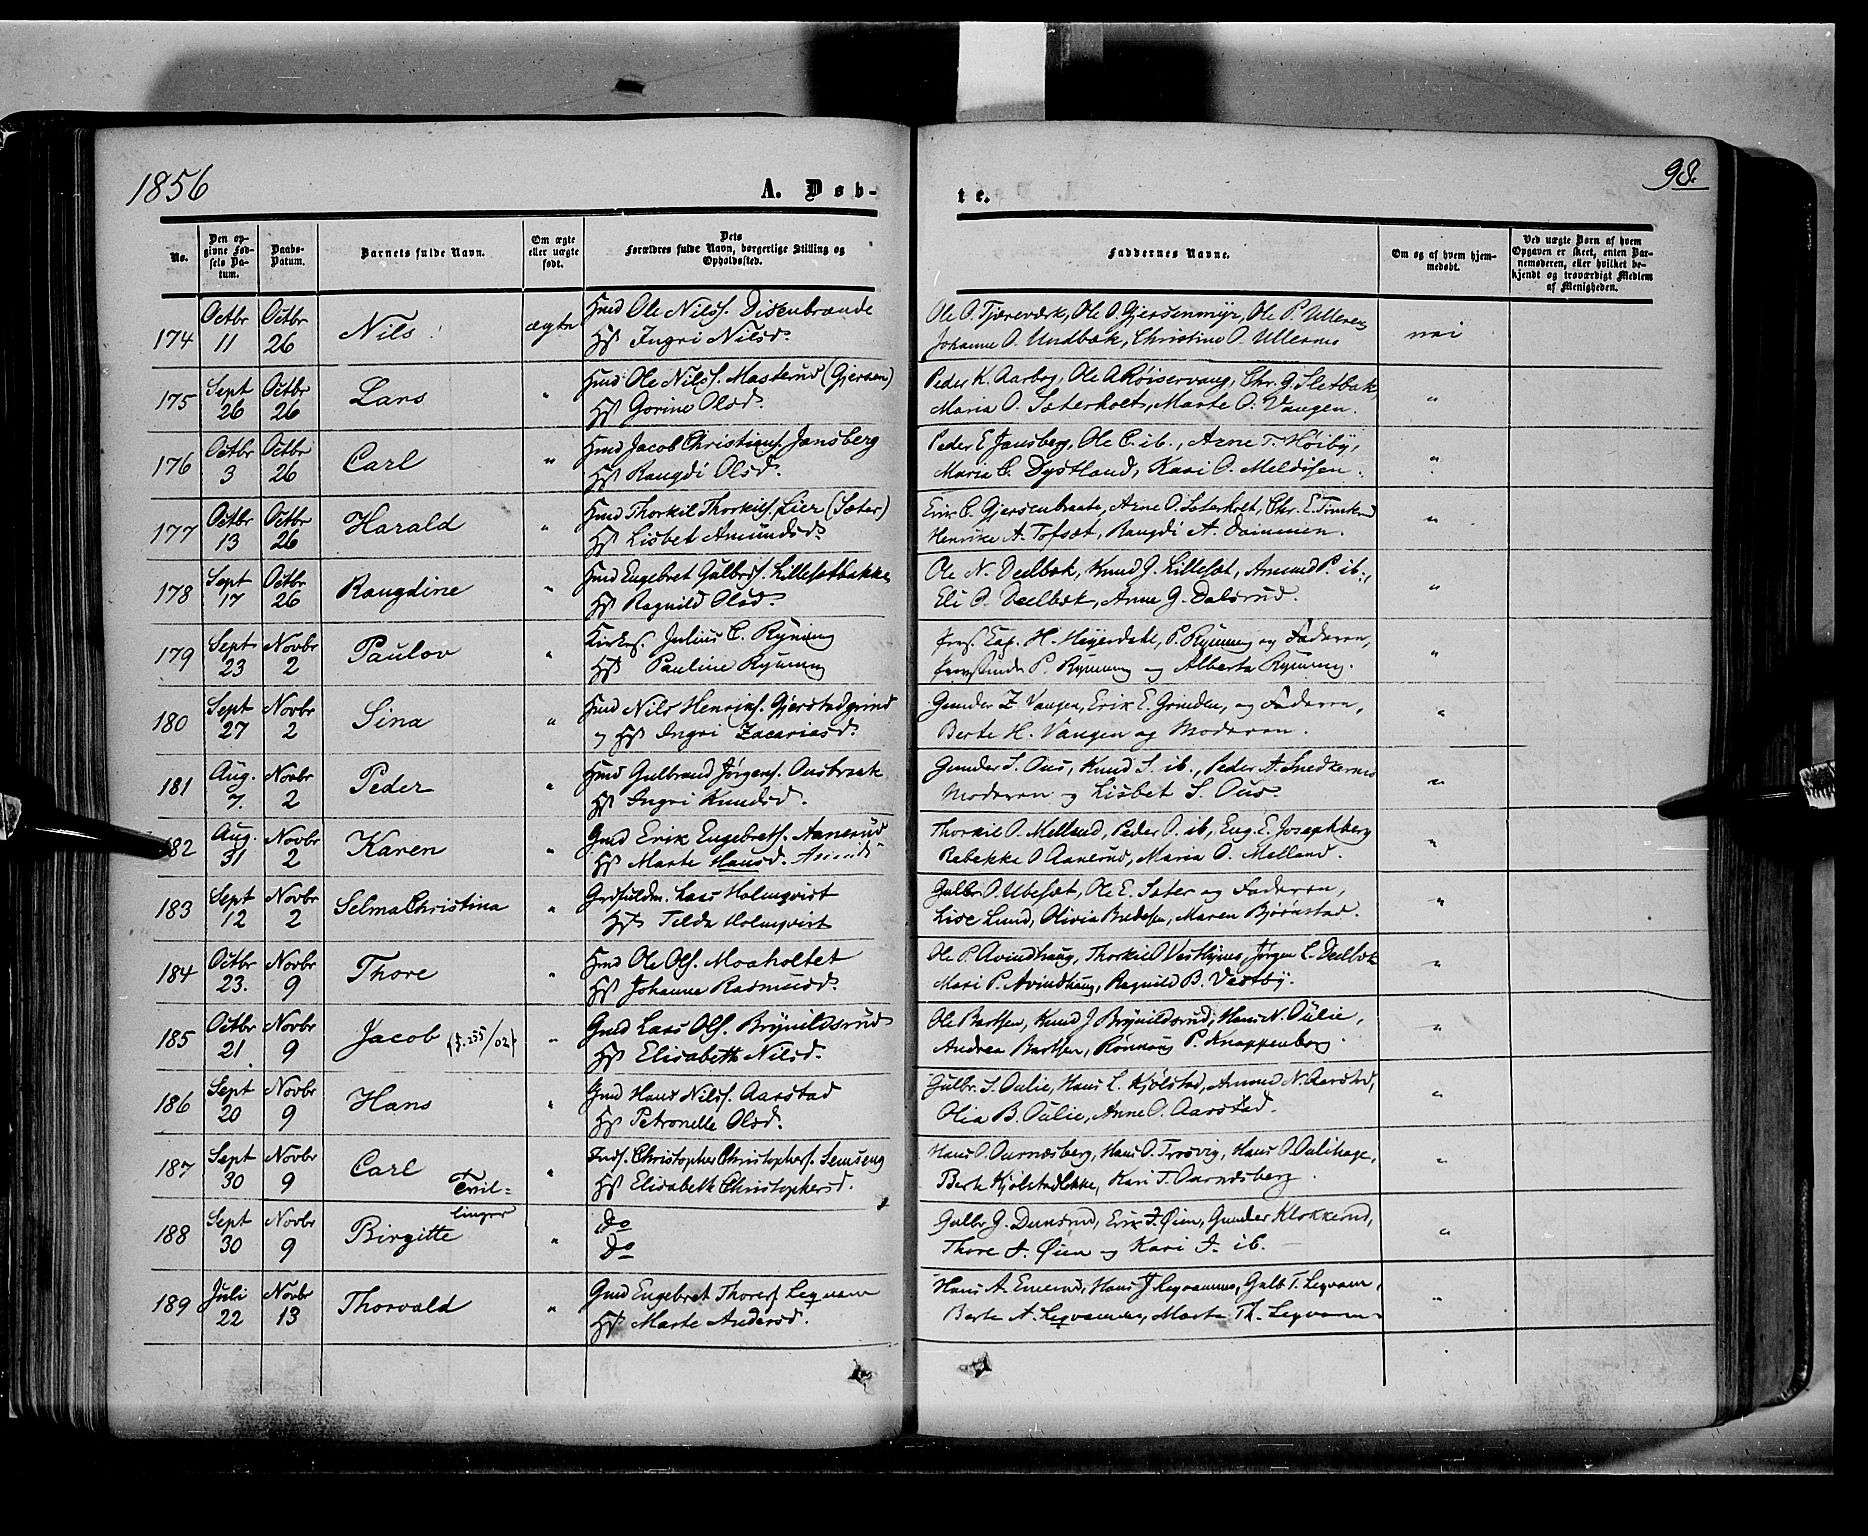 1856
A. Døb-
te.
98.
No.
Den op-
givne Fød-
sels Da-
tum.
Daabs-
Datum.
Barnets fulde Navn.
Om ægte
eller uægte
født.
Dets
Forældres fulde Navn, borgerlige Stilling og
Opholdssted.
Faddernes Navne.
Om og af hvem hjem-
medøbt.
Ved uægte Børn af hvem
Opgaven er skeet, enten Bar-
nemoderen, eller hvilket be-
kjendt og troværdigt Medlem
af Menigheden.
174 Octbr 11 Octbr 26 Nils ægte
Hmd Ole Nilss. Disenbraade
Hst Ingri Nilsd.
Ole O. Tjæreværk, Ole O. Gjersenmyr, Ole P. Ulleren
Johanne O. Undbæk, Christine O. Ulleren
nei
175 Sept 26 Octbr 26 Lars "
Hmd Ole Nilss. Masterud (Gjersen)
Hst Gorine Olsd.
Peder K. Aarbog, Ole A Røiservang, Chr. G. Sletbak,
Maria O. Sæterholt, Marte O. Vangen.
"
176 Octbr 3 Octbr 26 Carl "
Hmd Jacob Christians. Jansberg
Hst Rangdi Olsd.
Peder E. Jansberg, Ole C. ib., Arne T. Høiby,
Maria C. Dystland, Kari O. Meldisen.
"
177 Octbr 13 Octbr 26 Harald "
Hmd Thorkil Thorkils. Lier (Sæter)
Hst Lisbet Amundsd.
Erik C. Gjersenbraate, Arne O. Sæterholt, Chr. E.
Henrike A. Tofsæt, Rangdi A. Dammen.
"
178 Sept 17 Octbr 26 Rangdine "
Hmd Engebret Gulbrds. Lillesætbakke
Hst Ragnild Olsd.
Ole N. Deelbæk, Knud J. Lillesæt, Amund P. ib.,
Eli O. Deelbæk, Anne G. Dalsrud.
"
179 Sept 23 Novbr 2 Paulov "
Kirkes. Julius C. Ryning
Hst Pauline Ryning
Cap. H. Heyerdahl, P. Rynning og Faderen,
P. Rynning og Alberta Rynning.
"
180 Sept 27 Novbr 2 Sina "
Hmd Nils Henriks. Gjerstadgrind
Hst Ingri Zacariasd.
Gunder Z. Vangen, Erik E. Grinden, og Faderen,
Berte H. Vangen og Moderen.
"
181 Aug. 7. Novbr 2 Peder "
Hmd Gulbrand Jørgens. Ousbraak
Hst Ingri Knudsd.
Gunder S. Ous, Knud S. ib., Peder A. Snedkernes
Moderen og Lisbet S. Ous.
"
182 Aug. 31 Novbr 2 Karen "
Gmd Erik Engebrets. Aanerud
Hst Marte Hansd.
Thorkil O. Melland, Peder O. ib, Eng. E. Josephberg
Rebekke O Aanerud, Maria O. Melland.
"
183 Sept 12 Novbr 2 Selma Christina "
Lars Holmqvist
Hst Tilda Holmqvist
Gulbr. O. Ubesæt, Ole E. Sæter og Faderen,
Lise Lund, Olivia Bredesen, Maren Bjørnstad.
"
184 Octbr 23. Novbr 9 Thore "
Hmd Ole Ols. Moaholtet
Hst Johanne Rasmusd.
Ole P. Avindhaug, Thorkil O Vesthynes, Jørgen C. Deelbæk
Mari P. Avindhaug, Ragnild B. Vestby.
"
185 Octbr 21 Novbr 9 Jacob (J. 255/02) "
Gmd Lars Ols. Brynildsrud
Hst Elisabeth Nilsd.
Ole Bartsen, Knud J Brynildsrud, Hans N. Oulie,
Andrea Bartsen, Rønnaug P. Knappenborg.
"
186 Sept 20 Novbr 9 Hans "
Gmd Hans Nilss. Aarstad
Hst Petronelle Olsd.
Gulbr. S. Oulie, Hans L. Kjølstad, Amund N. Aarstad,
Olia B. Oulie, Anne O. Aarstad.
"
187 Sept 30 Novbr 9 Carl "
Inds. Christopher Christophers. Semseng
Hst Elisabeth Christophersd.
Hans O. Ournæsberg, Hans O. Trosvig, Hans O. Oulihage,
Berte Kjølstadløkke, Kari T. Ournæsberg.
"
Tvil=
linger
188 Sept 30 Novbr 9 Birgitte "
Do
Do
Gulbr. G. Dunsrud, Erik J. Øien, Gunder Klokkerud,
Thore J. Øien og Kari J. ib.
"
189 Juli 22 Novbr 13 Thorvald "
Gmd Engebret Thoress Leqvam
Hst Marte Andersd.
Hans A. Emerud, Hans J Leqvamnes, Gulb T. Leqvam,
Berte A. Leqvamnes, Marte Th. Leqvam.
"